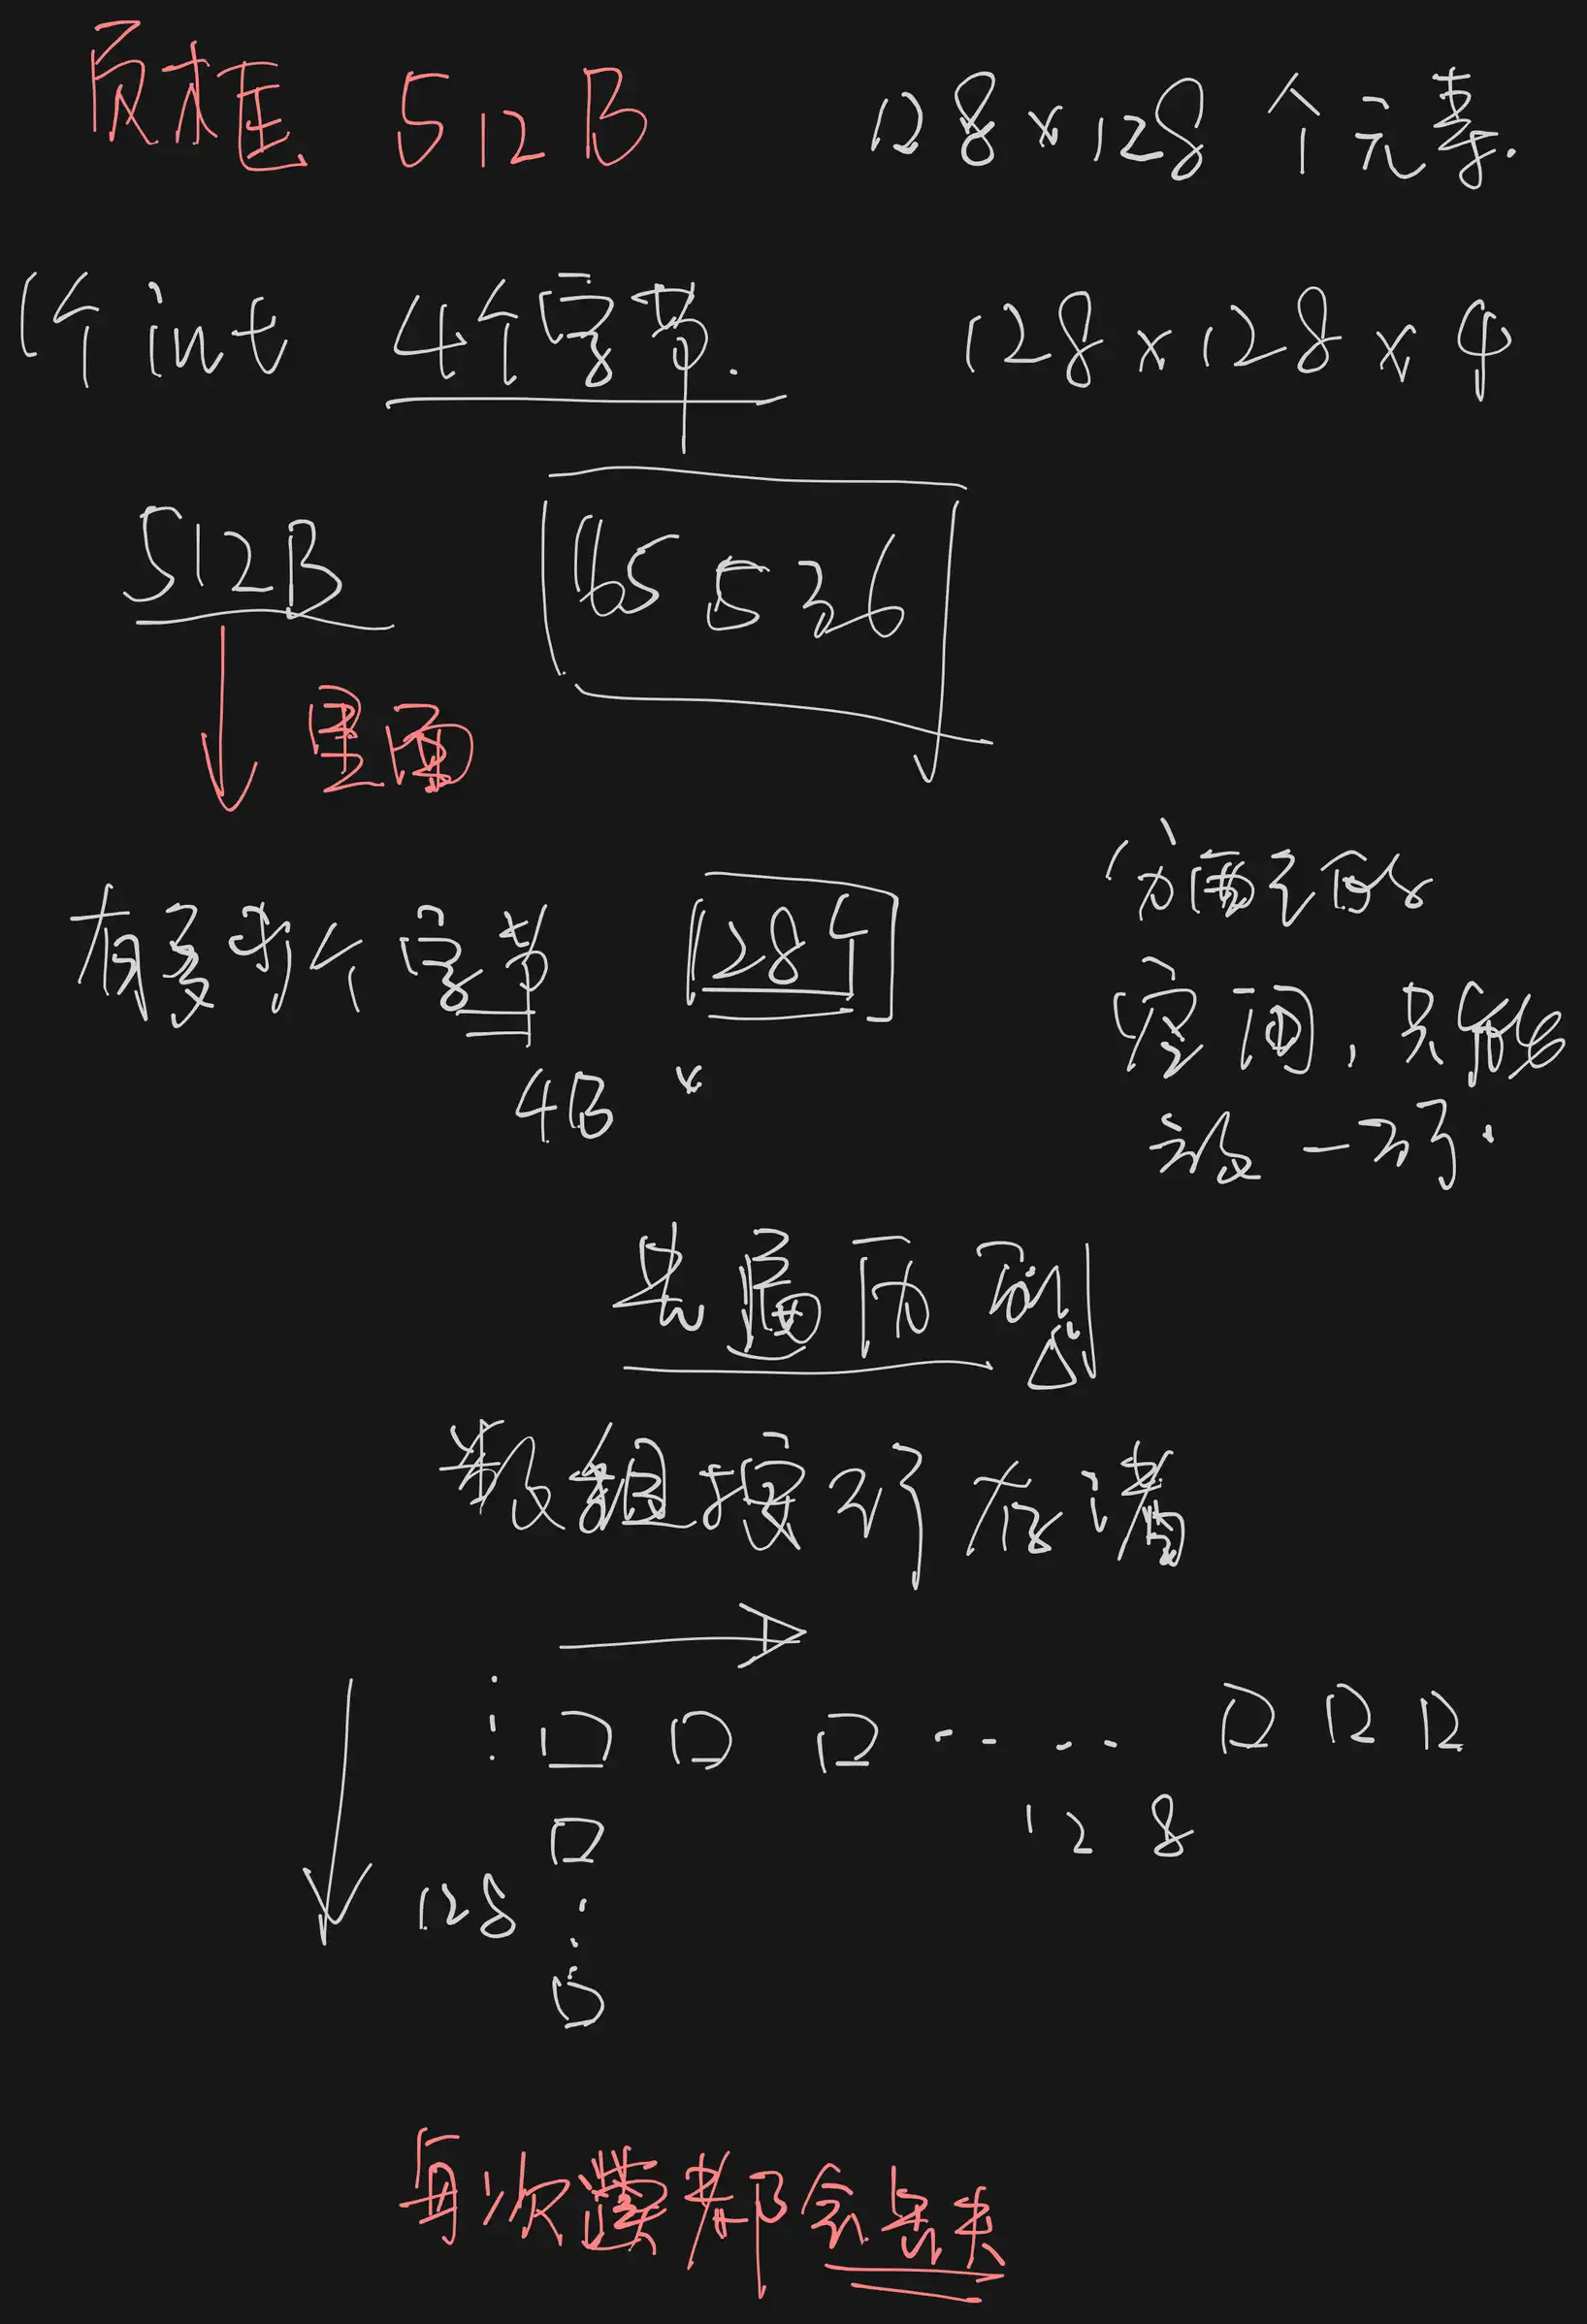 页框 512B 128×128个元素.
1个int 4个字节. 128×128×4
512B 65526
里面
有多少个字节 128个
4B ×
分配的
空间,只能
放一行.
先遍历列
数组按行存储
128
128
每次读都会缺失